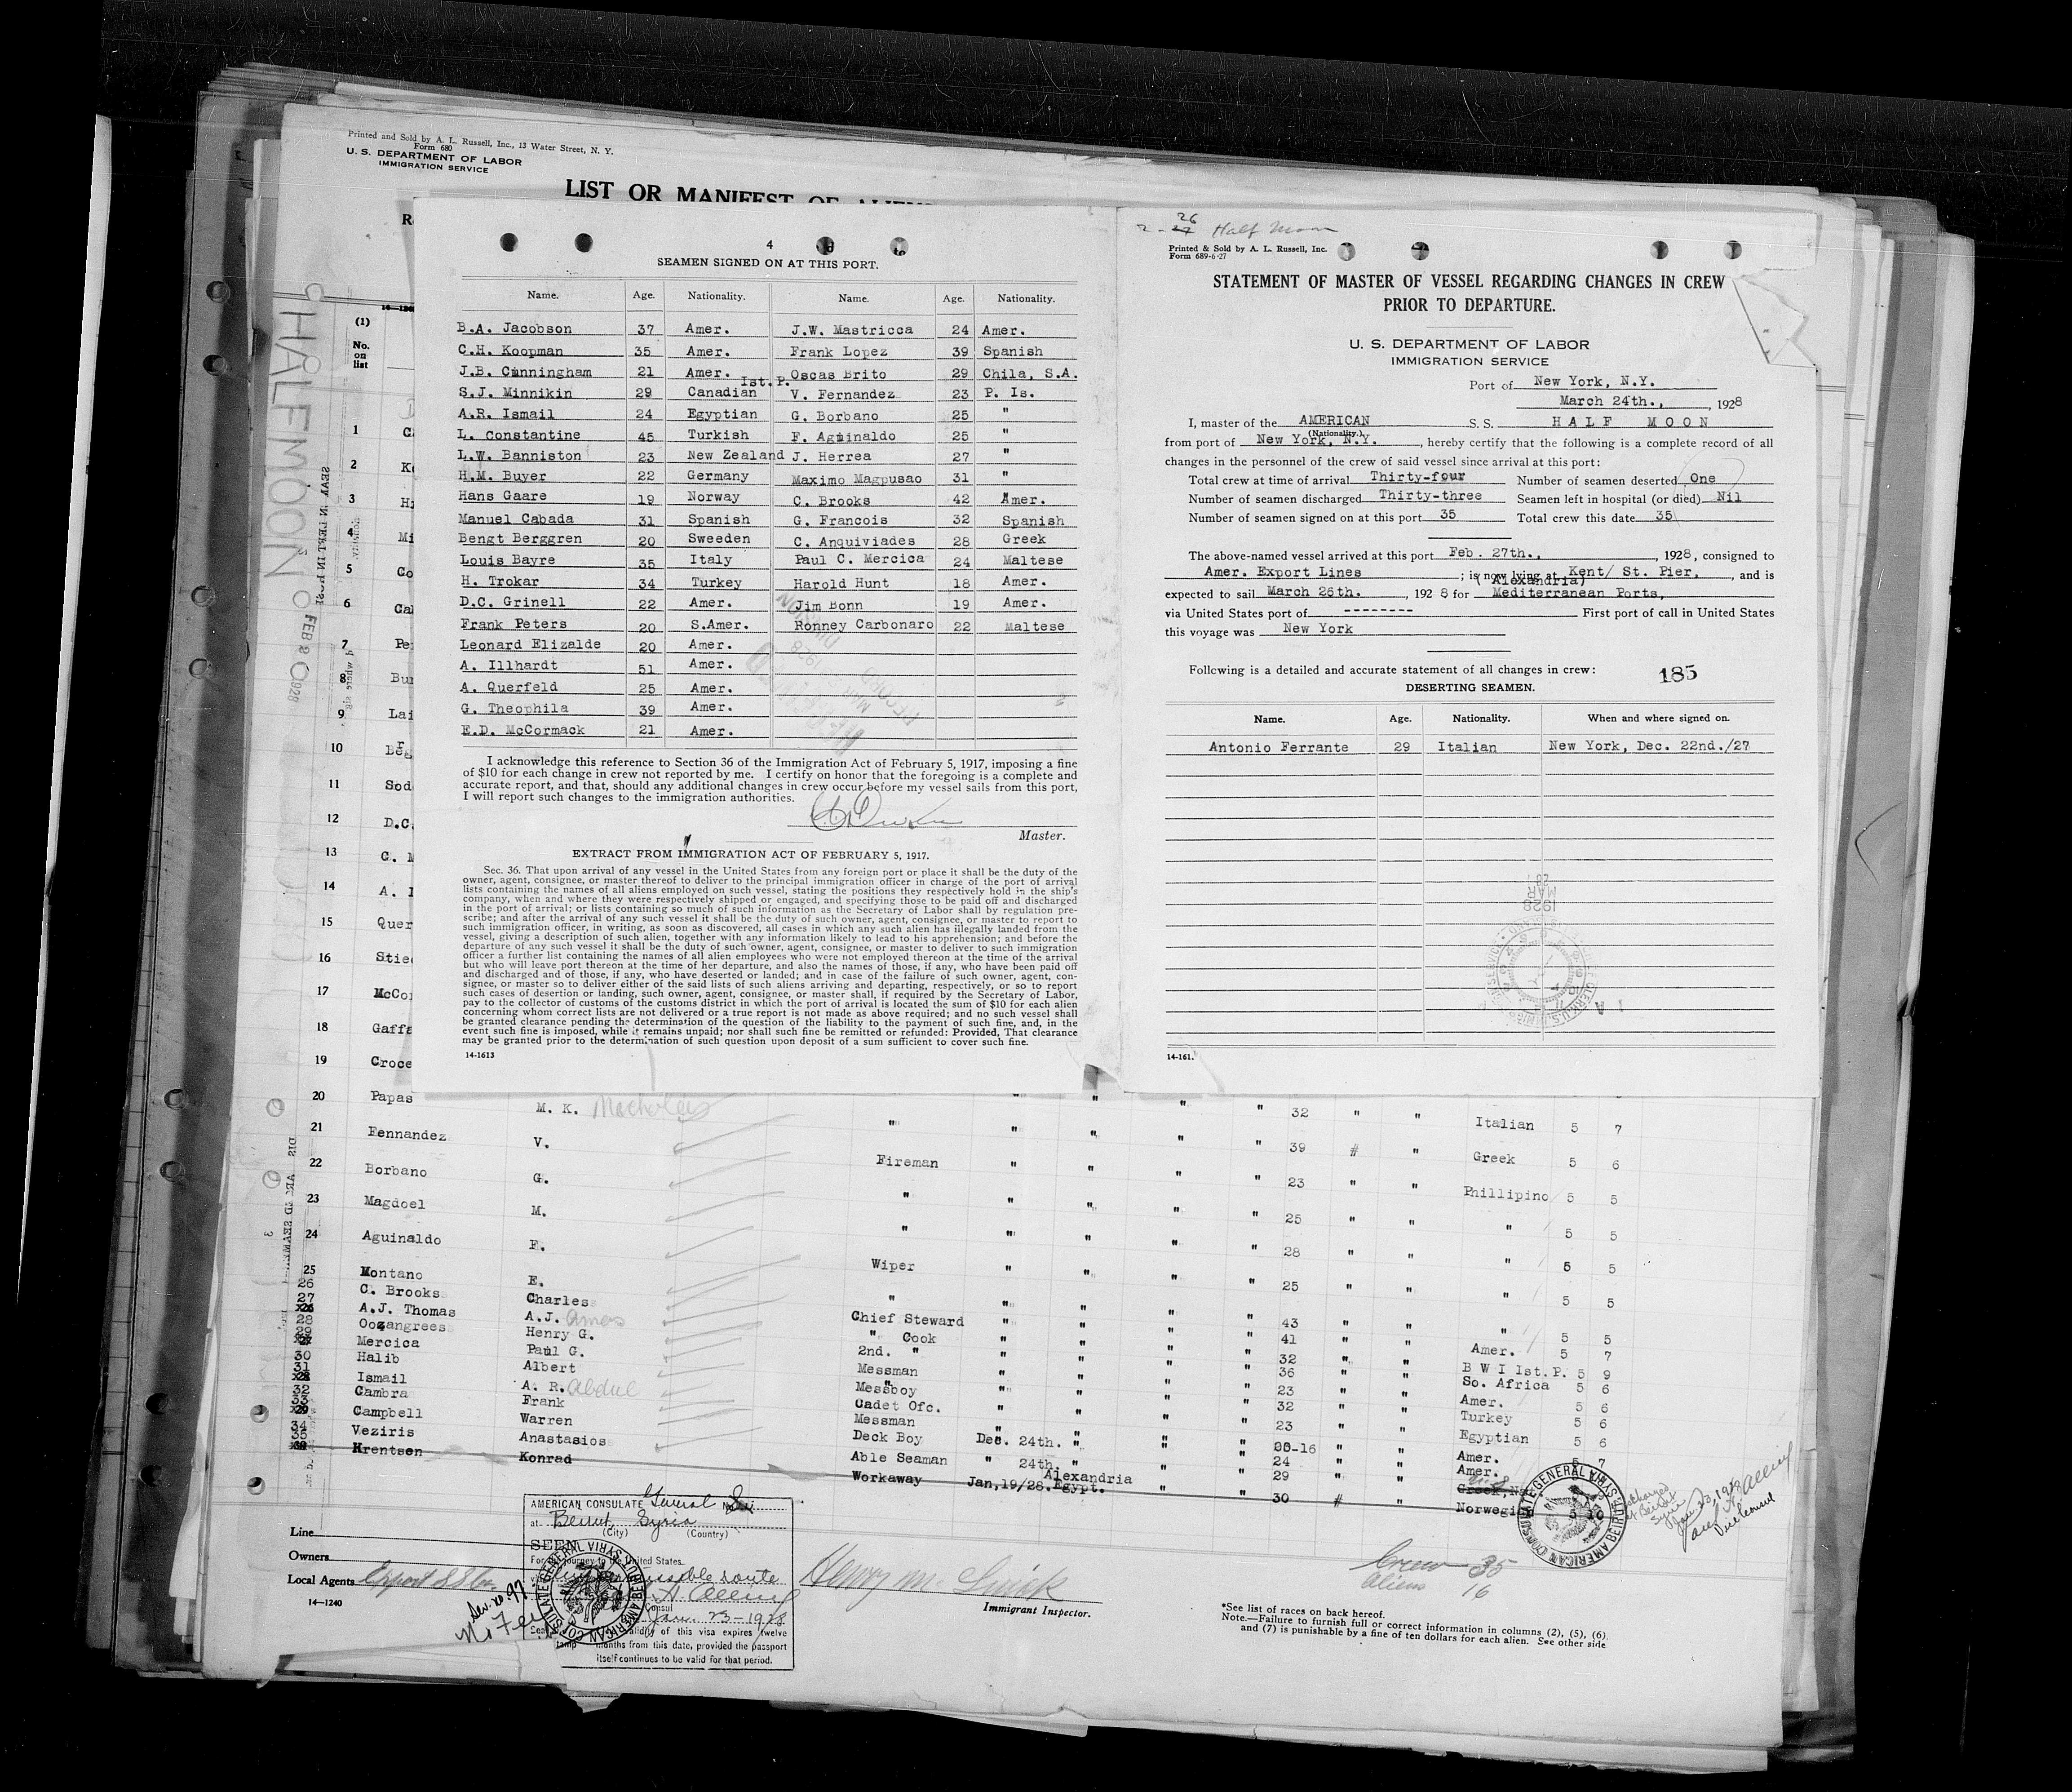 Printed and Sold by A. L. Russell, Inc., 13 Water Street, N. Y.
Form 680
U. S. DEPARTMENT OF LABOR
IMMIGRATION SERVICE
LIST OR MANIFEST OF ALIENS
(1)
No.
on
list
HALFMOON
FEB 1928
4
SEAMEN SIGNED ON AT THIS PORT.
Name. Age. Nationality. Name. Age. Nationality.
B.A. Jacobson 37 Amer. J.W. Mastricca 24 Amer.
C.H. Koopman 35 Amer. Frank Lopez 39 Spanish
J.B. Cunningham 21 Amer. Oscas Brito 29 Chila, S.A.
S.J. Minnikin 29 Canadian Ist.P. V. Fernandez 23 P. Is.
A.R. Ismail 24 Egyptian G. Borbano 25 "
L. Constantine 45 Turkish F. Aguinaldo 25 "
L.W. Banniston 23 New Zealand J. Herrea 27 "
H.M. Buyer 22 Germany Maximo Magpusao 31 "
Hans Gaare 19 Norway C. Brooks 42 Amer.
Manuel Cabada 31 Spanish G. Francois 32 Spanish
Bengt Berggren 20 Sweeden C. Anquiviades 28 Greek
Louis Bayre 35 Italy Paul C. Mercica 24 Maltese
H. Trokar 34 Turkey Harold Hunt 18 Amer.
D.C. Grinell 22 Amer. Jim Bonn 19 Amer.
Frank Peters 20 S.Amer. Ronney Carbonaro 22 Maltese
Leonard Elizalde 20 Amer.
A. Illhardt 51 Amer.
A. Querfeld 25 Amer.
G. Theophila 39 Amer.
E.D. McCormack 21 Amer.
I acknowledge this reference to Section 36 of the Immigration Act of February 5, 1917, imposing a fine
of $10 for each change in crew not reported by me. I certify on honor that the foregoing is a complete and
accurate report, and that, should any additional changes in crew occur before my vessel sails from this port,
I will report such changes to the immigration authorities.
Master.
EXTRACT FROM IMMIGRATION ACT OF FEBRUARY 5, 1917.
Sec. 36. That upon arrival of any vessel in the United States from any foreign port or place it shall be the duty of the
owner, agent, consignee, or master thereof to deliver to the principal immigration officer in charge of the port of arrival
lists containing the names of all aliens employed on such vessel, stating the positions they respectively hold in the ship's
company, when and where they were respectively shipped or engaged, and specifying those to be paid off and discharged
in the port of arrival; or lists containing so much of such information as the Secretary of Labor shall by regulation pre-
scribe; and after the arrival of any such vessel it shall be the duty of such owner, agent, consignee, or master to report to
such immigration officer, in writing, as soon as discovered, all cases in which any such alien has illegally landed from the
vessel, giving a description of such alien, together with any information likely to lead to his apprehension; and before the
departure of any such vessel it shall be the duty of such owner, agent, consignee, or master to deliver to such immigration
officer a further list containing the names of all alien employees who were not employed thereon at the time of the arrival
but who will leave port thereon at the time of her departure, and also the names of those, if any, who have been paid off
and discharged and of those, if any, who have deserted or landed; and in case of the failure of such owner, agent, con-
signee, or master so to deliver either of the said lists of such aliens arriving and departing, respectively, or so to report
such cases of desertion or landing, such owner, agent, consignee, or master shall, if required by the Secretary of Labor,
pay to the collector of customs of the customs district in which the port of arrival is located the sum of $10 for each alien
concerning whom correct lists are not delivered or a true report is not made as above required; and no such vessel shall
be granted clearance pending the determination of the question of the liability to the payment of such fine, and, in the
event such fine is imposed, while it remains unpaid; nor shall such fine be remitted or refunded: Provided, That clearance
may be granted prior to the determination of such question upon deposit of a sum sufficient to cover such fine.
14-1613
26 Half Moon
Printed & Sold by A. L. Russell, Inc.
Form 689-6-27
STATEMENT OF MASTER OF VESSEL REGARDING CHANGES IN CREW
PRIOR TO DEPARTURE.
U. S. DEPARTMENT OF LABOR
IMMIGRATION SERVICE
Port of New York, N.Y.
March 24th., 1928
I, master of the AMERICAN S.S. HALF MOON
(Nationality.)
from port of New York, N.Y., hereby certify that the following is a complete record of all
changes in the personnel of the crew of said vessel since arrival at this port:
Total crew at time of arrival Thirty-four Number of seamen deserted One
Number of seamen discharged Thirty-three Seamen left in hospital (or died) Nil
Number of seamen signed on at this port 35 Total crew this date 35
The above-named vessel arrived at this port Feb. 27th., 1928, consigned to
Amer. Export Lines; is now lying at Kent/ St. Pier., and is
(Alexandria)
expected to sail March 26th., 1928 for Mediterranean Ports,
via United States port of -------- First port of call in United States
this voyage was New York
Following is a detailed and accurate statement of all changes in crew: 185
DESERTING SEAMEN.
Name. Age. Nationality. When and where signed on.
Antonio Ferrante 29 Italian New York, Dec. 22nd./27
MAR
1928
14-161
1
2
3
4 Mi
5 Co
6 Cal
7 Pe
8 Bu
9 Lai
10
11 Sod
12 D.C
13 C. M
14 A. I
15 Quer
16 Stie
17 McCo
18 Gaffa
19 Croce
20 Papas M. K. " " " " " 32 " " Italian 5 7
21 Fennandez V. " " " " 39 # " Greek 5 6
22 Borbano G. Fireman " " " " 23 " " Phillipino 5 5
23 Magdoel M. " " " " " 25 " " " 5 5
24 Aguinaldo F. " " " " " 28 " " " 5 5
25 Montano E. Wiper " " " " 25 " " " 5 5
26 C. Brooks Charles " " " " " 43 " " " 5 5
27 A.J. Thomas A.J. Amos Chief Steward " " " " 41 " " Amer. 5 7
28 Oozangrees Henry G. " Cook " " " " 32 " " B W I Ist.P. 5 9
29 Mercica Paul G. 2nd. " " " " " 36 " " So. Africa 5 6
30 Halib Albert Messman " " " " 23 " " Amer. 5 6
31 Ismail A. R. Abdul Messboy " " " " 32 " " Turkey 5 6
32 Cambra Frank Cadet Ofc. " " " " 23 " " Egyptian 5 6
33 Campbell Warren Messman " " " " 16 " " Amer. 5 7
34 Veziris Anastasios Deck Boy Dec. 24th. " " " 24 " " Amer.
35 Krentsen Konrad Able Seaman " 24th. " " " 29 " " Greek
Workaway Jan, 19/28. Alexandria Egypt. 30 # " Norwegi 5 10
Line
Owners
Local Agents Export SS Co.
14—1240
AMERICAN CONSULATE General
at Beirut, Syria
(City) (Country)
SEEN
For the journey to the United States.
route
Consul
Jan. 23-1928
validity of this visa expires twelve
months from this date, provided the passport
itself continues to be valid for that period.
AMERICAN CONSULATE GENERAL BEIRUT SYRIA
No Fee
Henry M.
Immigrant Inspector.
Crew 35
aliens 16
AMERICAN CONSULATE GENERAL BEIRUT SYRIA
Discharged
at Beirut
Syria
Jan 23, 1928
Vice Consul
*See list of races on back hereof.
Note.—Failure to furnish full or correct information in columns (2), (5), (6),
and (7) is punishable by a fine of ten dollars for each alien. See other side